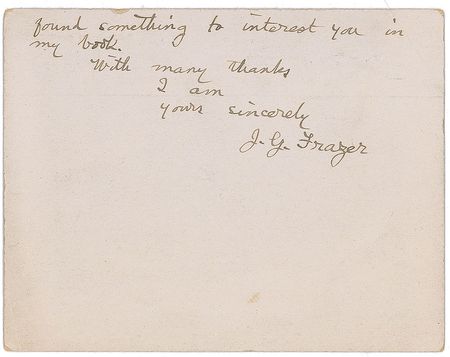 found something to interest you in
my book.
With many thanks
I am
yours sincerely
J. G. Frazer